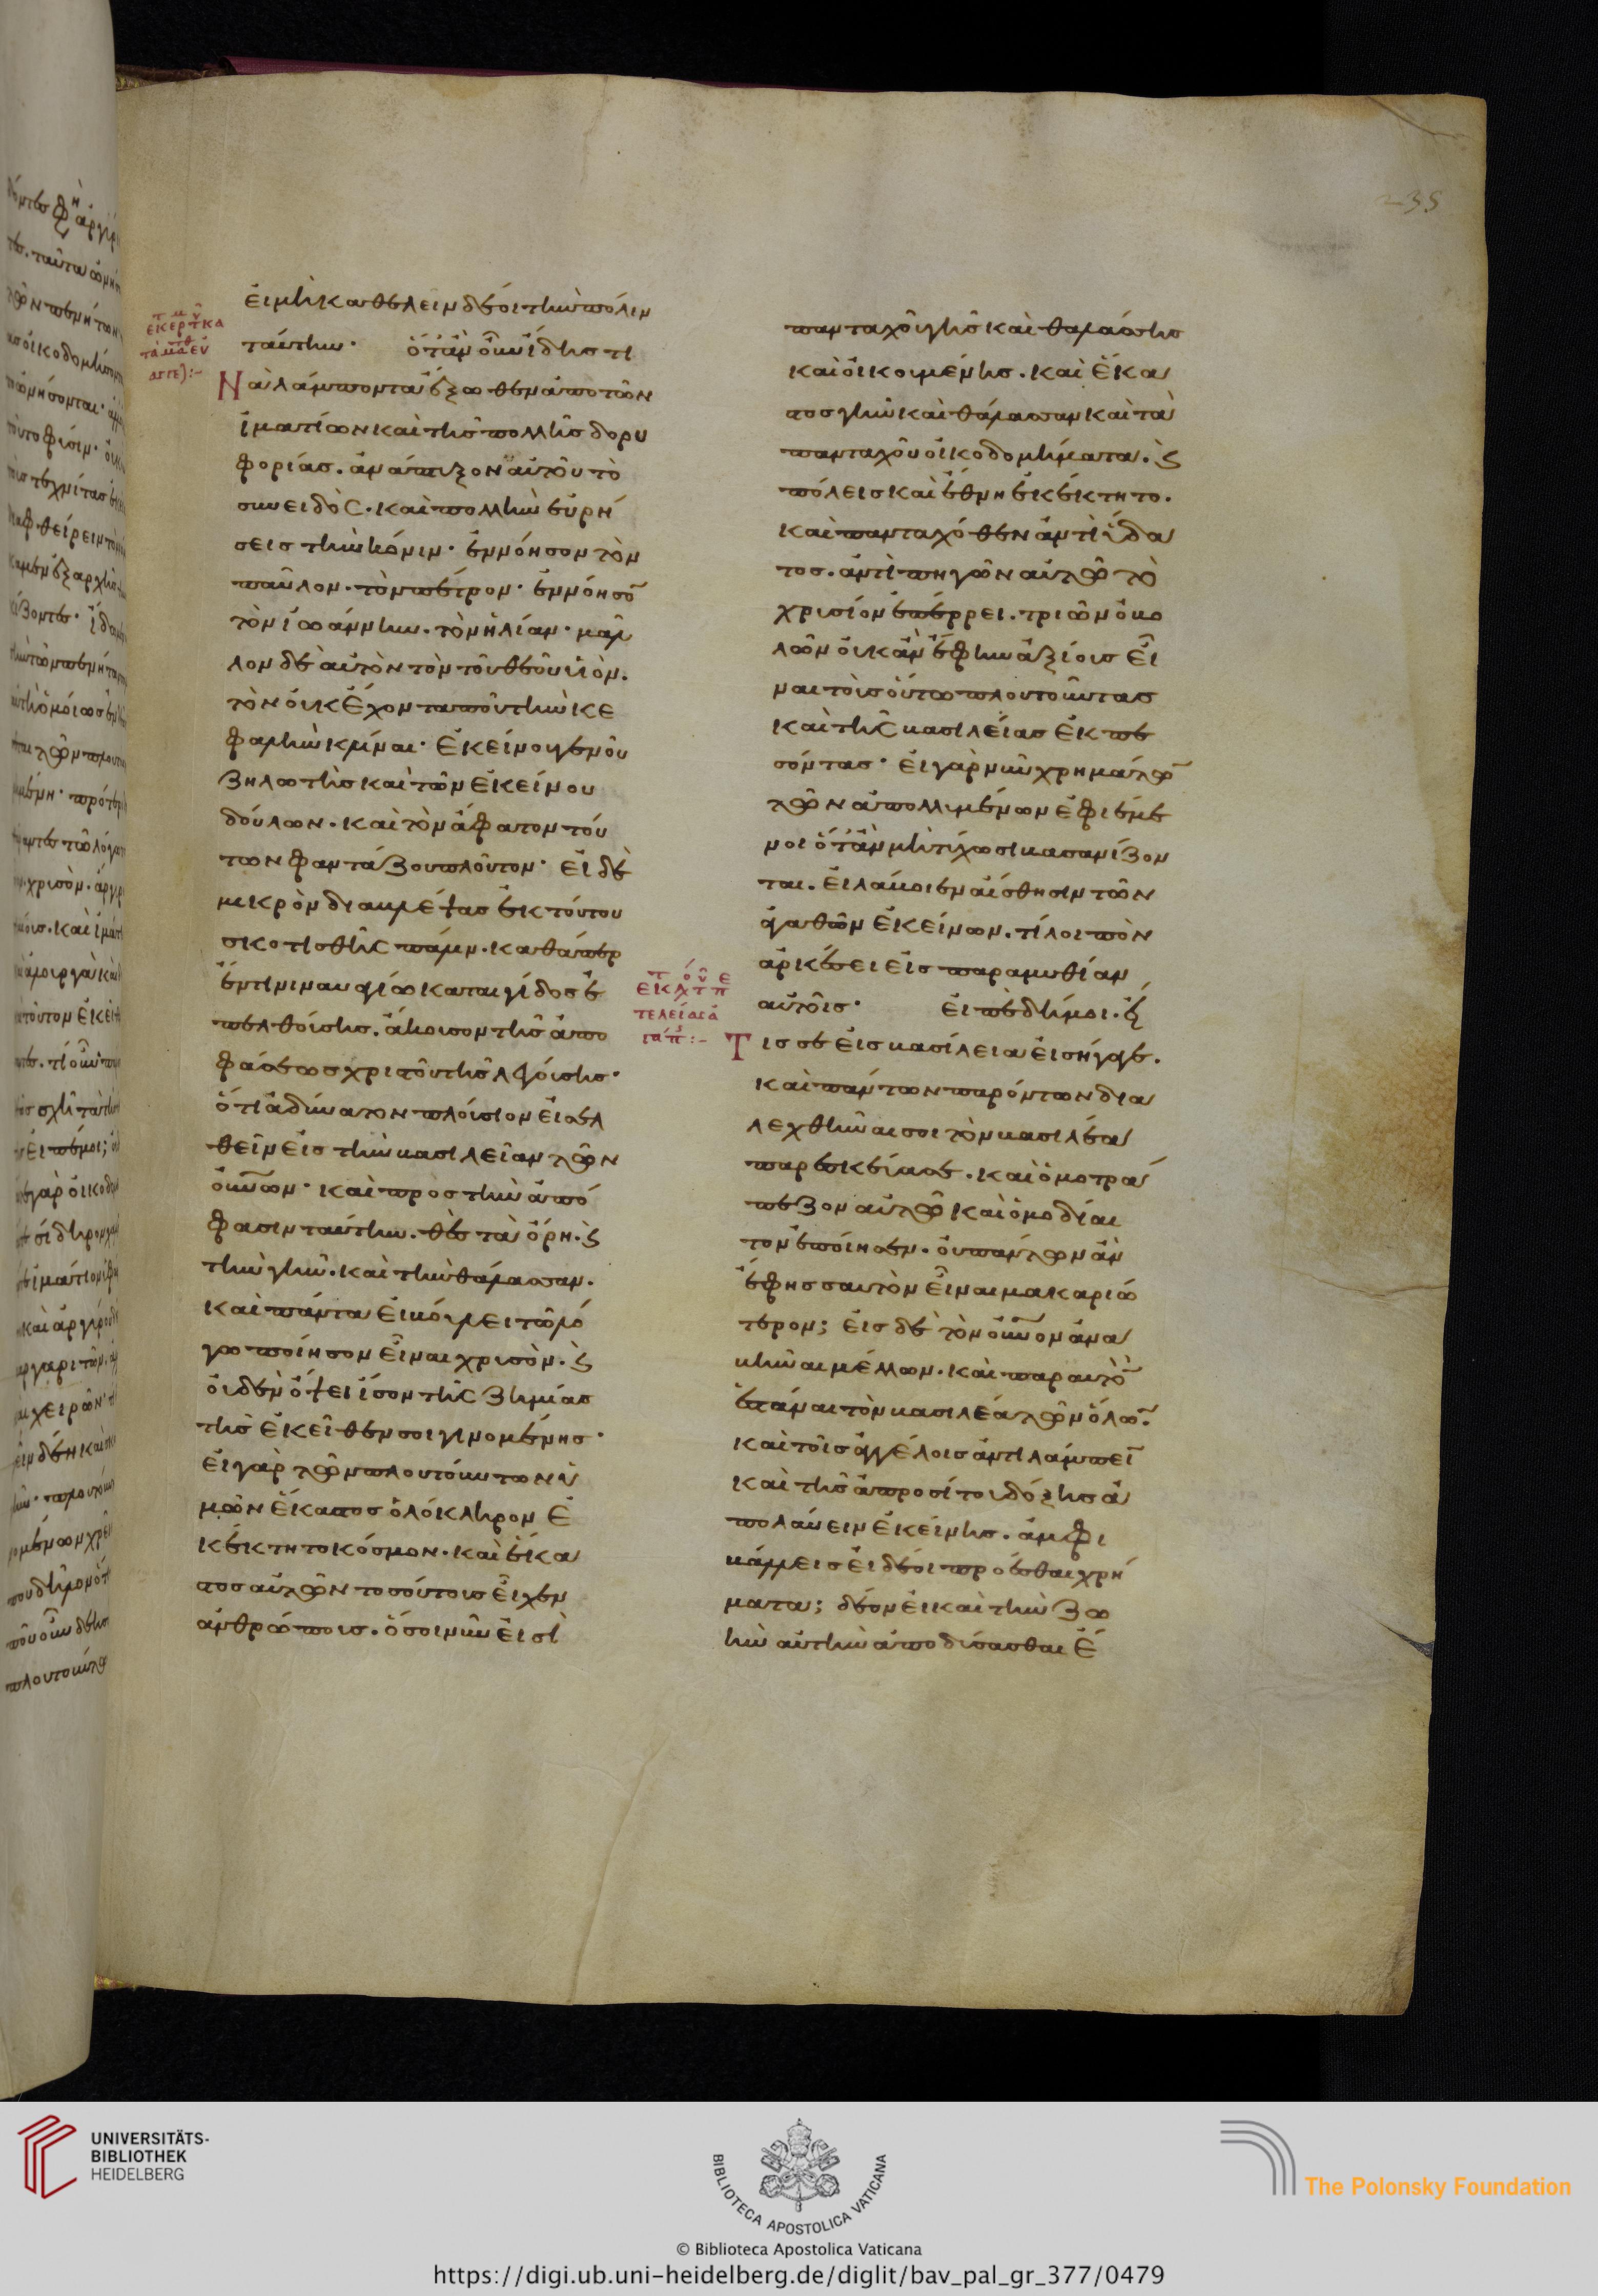 εἰ μὴ καθελεῖν δέοι τὴν πόλιν
ταύτην· ὅταν οὖν ἴδης τι
Νὰ λάμποντα ἔξωθεν ἀπὸ τῶν
ἱματίων καὶ τῆς πολλῆς δορυ
φορίας. ἀνάπτυξον αὐτοῦ τὸ
συνειδὸς. καὶ πολλὴν εὑρή
σεις τὴν κόνιν· ἐννόησον τὸν
παῦλον. τὸν πέτρον· ἐννόησο̅
τὸν ἰωάννην. τὸν ἠλίαν· μᾶλ
λον δὲ αὐτὸν τὸν τοῦ θεοῦ υἱὸν.
τὸν οὐκ ἔχοντα ποῦ τὴν κε
φαλὴν κλίναι· ἐκείνου γενοῦ
ζηλωτὴς καὶ τῶν ἐκείνου
δούλων. καὶ τὸν ἄφατον τού
των φαντάζου πλοῦτον· εἰ δὲ
μικρὸν διαβλέψας ἐκ τούτου
σκοτισθῆς πάλιν. καθάπερ
ἐν τινι ναυαγίω καταιγίδος ἐ
πελθούσης. ἄκουσον τῆς ἀπο
φάσεως χριστοῦ τῆς λεγούσης·
ὅτι ἀδύνατον πλούσιον εἰσελ
θεῖν εἰς τὴν βασιλείαν τῶν
οὐνων· καὶ πρὸς τὴν ἀπό
φασιν ταύτην. θὲς τὰ ὄρη. ϛ
τὴν γῆν. καὶ τὴν θάλασσαν.
καὶ πάντα εἰ βούλει τῶ λό
γω ποίησον εἶναι χρυσὸν. ϛ
οὐδὲν ὄψει ἴσον τῆς ζημίας
τῆς ἐκεῖθεν σοι γινομένης·
εἰ γὰρ τῶν πλουτούντων ἡ
μῶν ἕκαστος ὁλόκληρον ἐ
κέκτητο κόσμον. καὶ ἕκα
στος αὐτῶν τοσούτους εἶχεν
ἀνθρώπους. ὅσοι νῦν εἰσὶ
πανταχοῦ γῆς καὶ θαλάσσης
καὶ οἰκουμένης. καὶ ἕκα
στος γῆν καὶ θάλασσαν καὶ τὰ
πανταχοῦ οἰκοδομήματα. ϛ
πόλεις καὶ ἔθνη ἐκέκτητο.
καὶ πανταχόθεν ἀντὶ ὕδα
τος. ἀντὶ πηγῶν αὐτῶ τὸ
χρυσίον ἐπέρρει. τριῶν ὀβο
λῶν οὐκ ἂν ἔφην ἀξίους εἶ
ναι τοὺς οὕτω πλουτοῦντας
καὶ τῆς βασιλείας ἐκπε
σόντας· εἰ γὰρ νῦν χρημάτω̅
τῶν ἀπολλυμένων ἐφιέμε
νοι ὅταν μὴ τύχωσι βασανίζον
ται. εἰ λάβοιεν αἴσθησιν τῶν
ἀγαθῶν ἐκείνων. τί λοιπὸν
ἀρκέσει εἰς παραμυθίαν
αὐτοῖς· εἰπὲ δή μοι. εἴ
Τις σε εἰς βασίλεια εἰσήγαγε.
καὶ πάντων παρόντων δια
λεχθῆναι σοι τὸν βασιλέα
παρεσκεύασε. καὶ ὁμοτρά
πεζον αὐτῶ καὶ ὁμοδίαι
τον ἐποίησεν. οὐ πάντων ἂν
ἔφης σαυτὸν εἶναι μακαριώ
τερον; εἰς δὲ τὸν οὐνον ἀνα
βῆναι μέλλων. καὶ παρ αὐτὸ̅
ἑστάναι τὸν βασιλέα τῶν ὅλω̅.
καὶ τοῖς ἀγγέλοις ἀντιλάμπει̅
καὶ τῆς ἀπροσίτου δόξης ἀ
πολαύειν ἐκείνης. ἀμφι
βάλλεις εἰ δέοι προέσθαι χρή
ματα; δέον εἰ καὶ τὴν ζω
ὴν αὐτὴν ἀποδύσασθαι ἔ
UNIVERSITÄTS-
BIBLIOTHEK
HEIDELBERG
BIBLIOTECA APOSTOLICA VATICANA
© Biblioteca Apostolica Vaticana
The Polonsky Foundation
https://digi.ub.uni-heidelberg.de/diglit/bav_pal_gr_377/0479